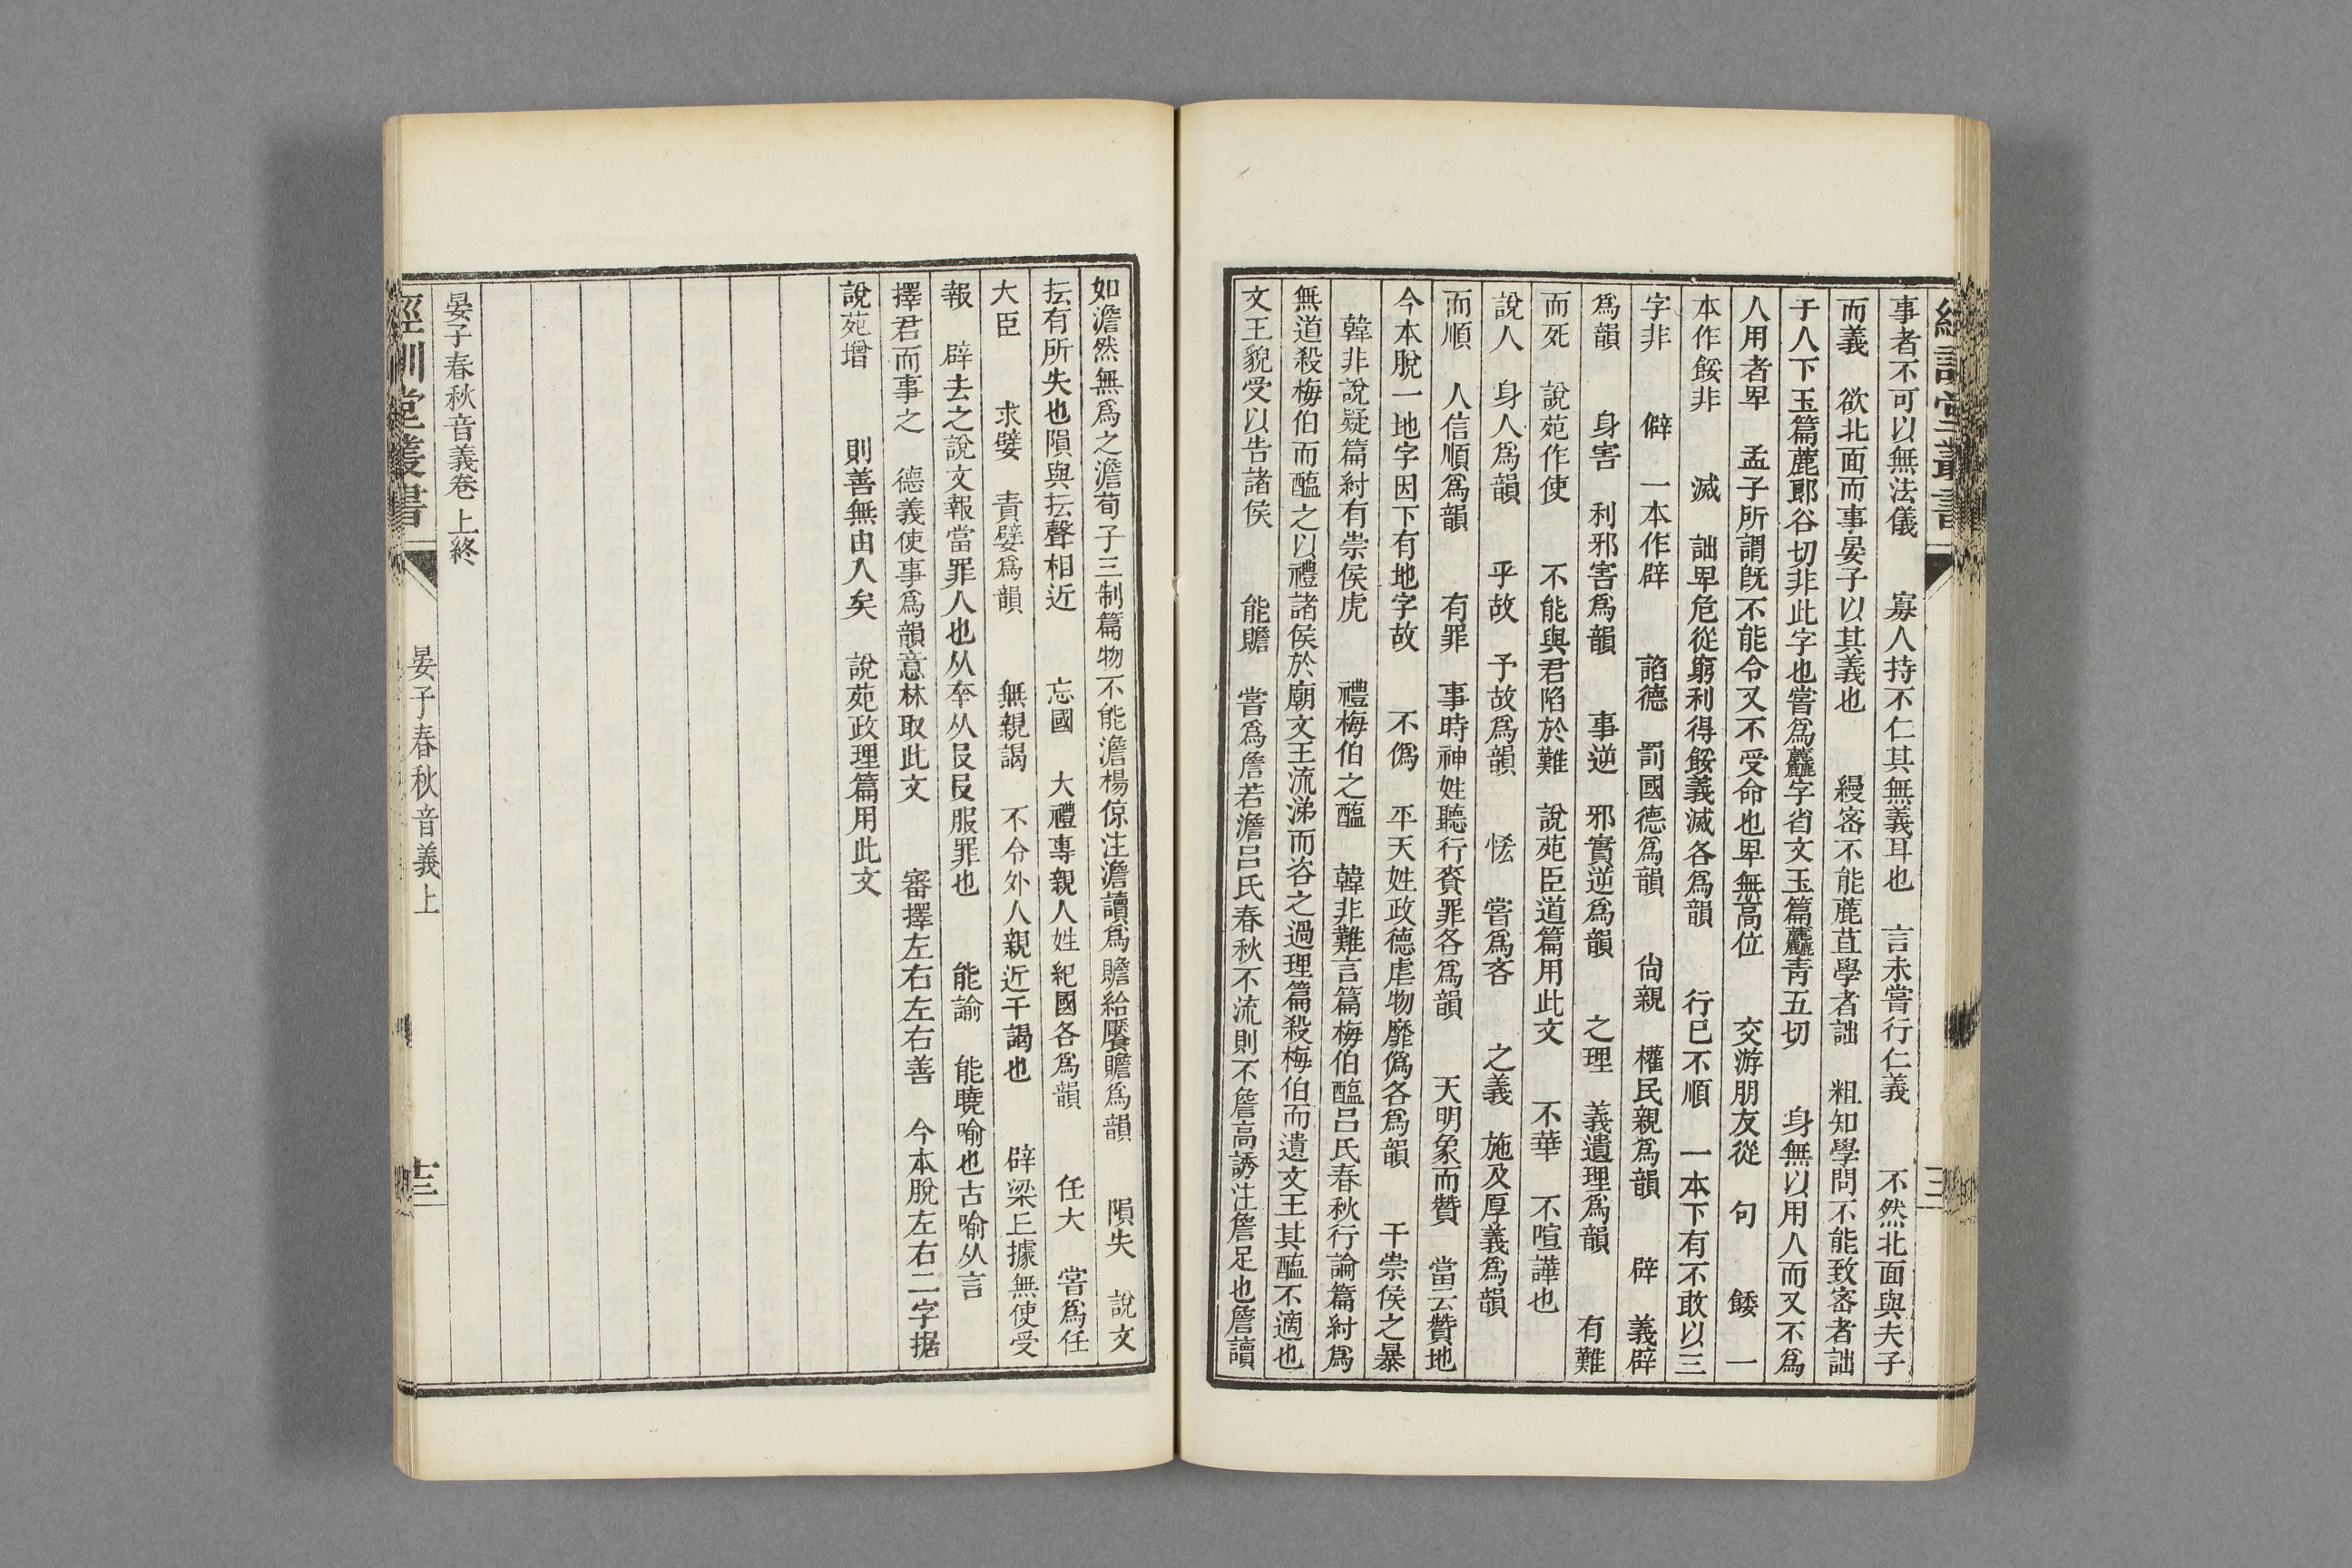 事者不可以無法儀　寡人持不仁其無義耳也　言未嘗行仁義　不然北面與夫子
而義　欲北面而事晏子以其義也　縵密不能蔍苴學者詘　粗知學問不能致密者詘
于人下玉篇蔍郎谷切非此字也嘗爲麤字省文玉篇麤靑五切　身無以用人而又不爲
人用者卑　孟子所謂旣不能令又不受命也卑無高位　交游朋友從　句　餧　一
本作餒非　滅　詘卑危從窮利得餒義滅各爲韻　行已不順　一本下有不敢以三
字非　僻　一本作辟　諂德　罰國德爲韻　尙親　權民親爲韻　辟　義辟
爲韻　身害　利邪害爲韻　事逆　邪實逆爲韻　之理　義遺理爲韻　有難
而死　說苑作使　不能與君陷於難　說苑臣道篇用此文　不華　不喧譁也
說人　身人爲韻　乎故　予故爲韻　恡　嘗爲吝　之義　施及厚義爲韻
而順　人信順爲韻　有罪　事時神姓聽行賚罪各爲韻　天明象而贊　當云贊地
今本脫一地字因下有地字故　不僞　平天姓政德虐物靡僞各爲韻　干崇侯之暴
韓非說疑篇紂有崇侯虎　禮梅伯之醢　韓非難言篇梅伯醢呂氏春秋行論篇紂爲
無道殺梅伯而醢之以禮諸侯於廟文王流涕而咨之過理篇殺梅伯而遺文王其醢不適也
文王貌受以告諸侯　能贍　嘗爲詹若澹呂氏春秋不流則不詹高誘注詹足也詹讀
如澹然無爲之澹荀子王制篇物不能澹楊倞注澹讀爲贍給饜贍爲韻　隕失　說文
抎有所失也隕與抎聲相近　忘國　大禮專親人姓紀國各爲韻　任大　嘗爲任
大臣　求嬖　責嬖爲韻　無親謁　不令外人親近干謁也　辟梁丘據無使受
報　辟去之說文報當罪人也从㚔从𠬝𠬝服罪也　能諭　能曉喻也古喻从言
擇君而事之　德義使事爲韻意林取此文　審擇左右左右善　今本脫左右二字据
說苑增　則善無由入矣　說苑政理篇用此文
晏子春秋音義卷上終
經訓堂叢書　晏子春秋音義上